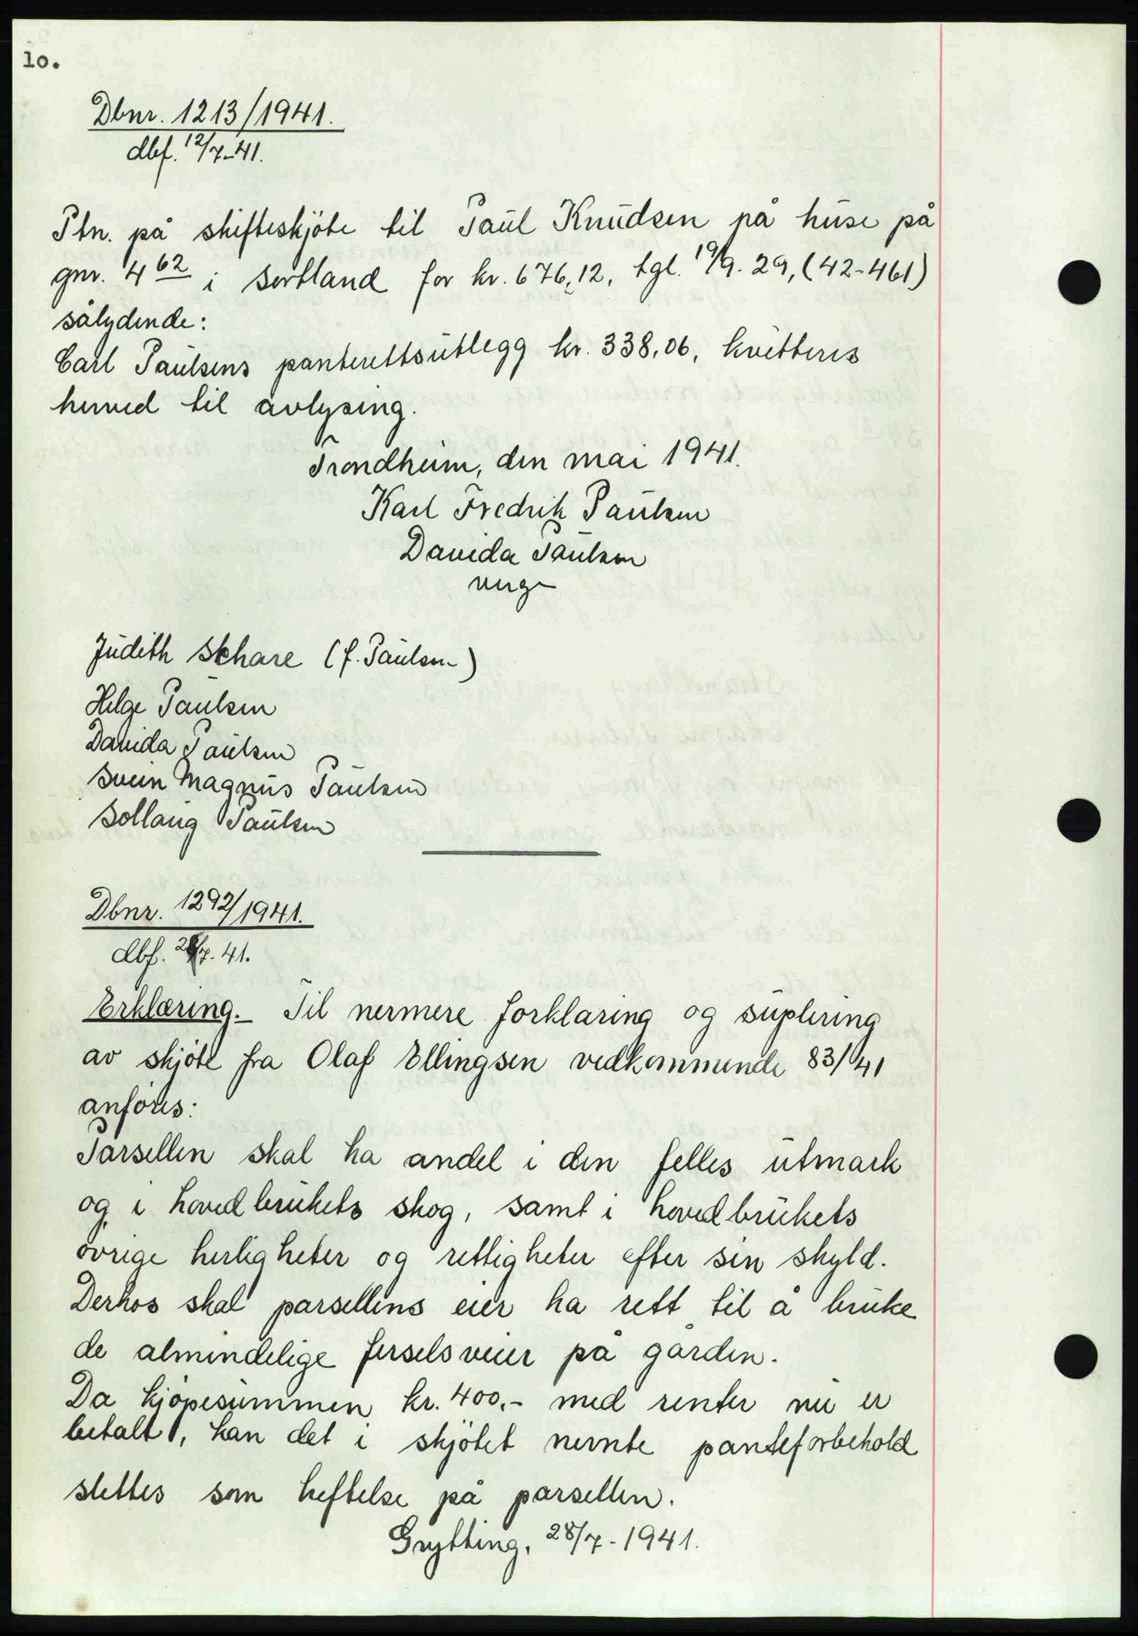 10.
Dbnr. 1213/1941.
dbf. 12/7-41.
Ptn. på skifteskjöte til Paul Knudsen på huse på
gnr. 4 62 i Sortland for kr. 676,12, tgl. 19/9-29, (42-461)
sålydende:
Carl Paulsens panterettsutlegg kr. 338,06, kvitteres
herved til avlysing.
Trondheim, den mai 1941.
Karl Fredrik Paulsen
Davida Paulsen
verge
Judith Schare (f. Paulsen)
Helge Paulsen
Davida Paulsen
Svein Magnus Paulsen
Sollaug Paulsen
Dbnr. 1292/1941.
dbf. 28/7-41.
Erklæring. Til nermere forklaring og suplering
av skjöte fra Olaf Ellingsen vedkommende 83/41
anföres:
Parsellen skal ha andel i den felles utmark
og i hovedbrukets skog, samt i hovedbrukets
övrige herligheter og rettigheter efter sin skyld.
Derhos skal parsellens eier ha rett til å bruke
de almindelige ferselsveier på gården.
Da kjöpesummen kr. 400,- med renter nu er
betalt, kan det i skjötet nevnte panteforbehold
slettes som heftelse på parsellen.
Grytting, 28/7-1941.